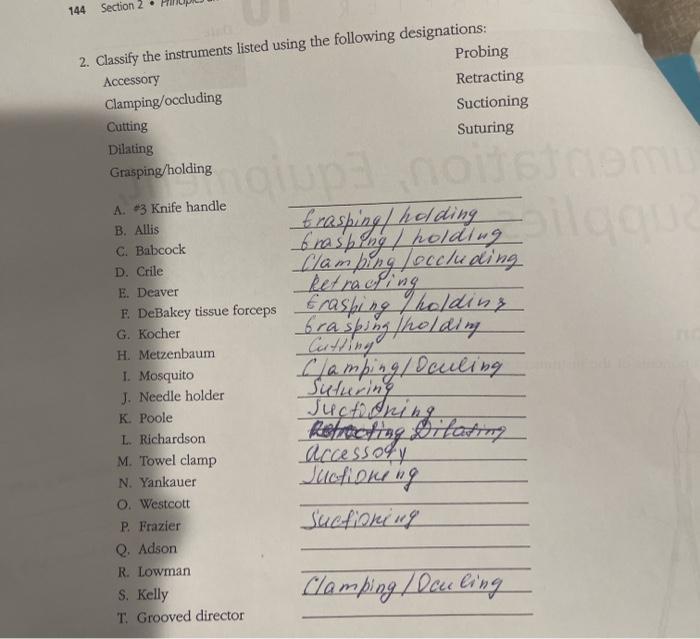 144 Section 2 •
2. Classify the instruments listed using the following designations:
Accessory
Clamping/occluding
Cutting
Dilating
Grasping/holding
Probing
Retracting
Suctioning
Suturing
A. #3 Knife handle
B. Allis Grasping/holding
C. Babcock Grasping/holding
D. Crile Clamping/occluding
E. Deaver Retracting
F. DeBakey tissue forceps Grasping/holding
G. Kocher Grasping/holding
H. Metzenbaum Cutting
I. Mosquito Clamping/Oculing
J. Needle holder Suturing
K. Poole Suctioning
L. Richardson Retracting Dilating
M. Towel clamp accessory
N. Yankauer Suctioning
O. Westcott
P. Frazier Suctioning
Q. Adson
R. Lowman
S. Kelly Clamping/Oculing
T. Grooved director